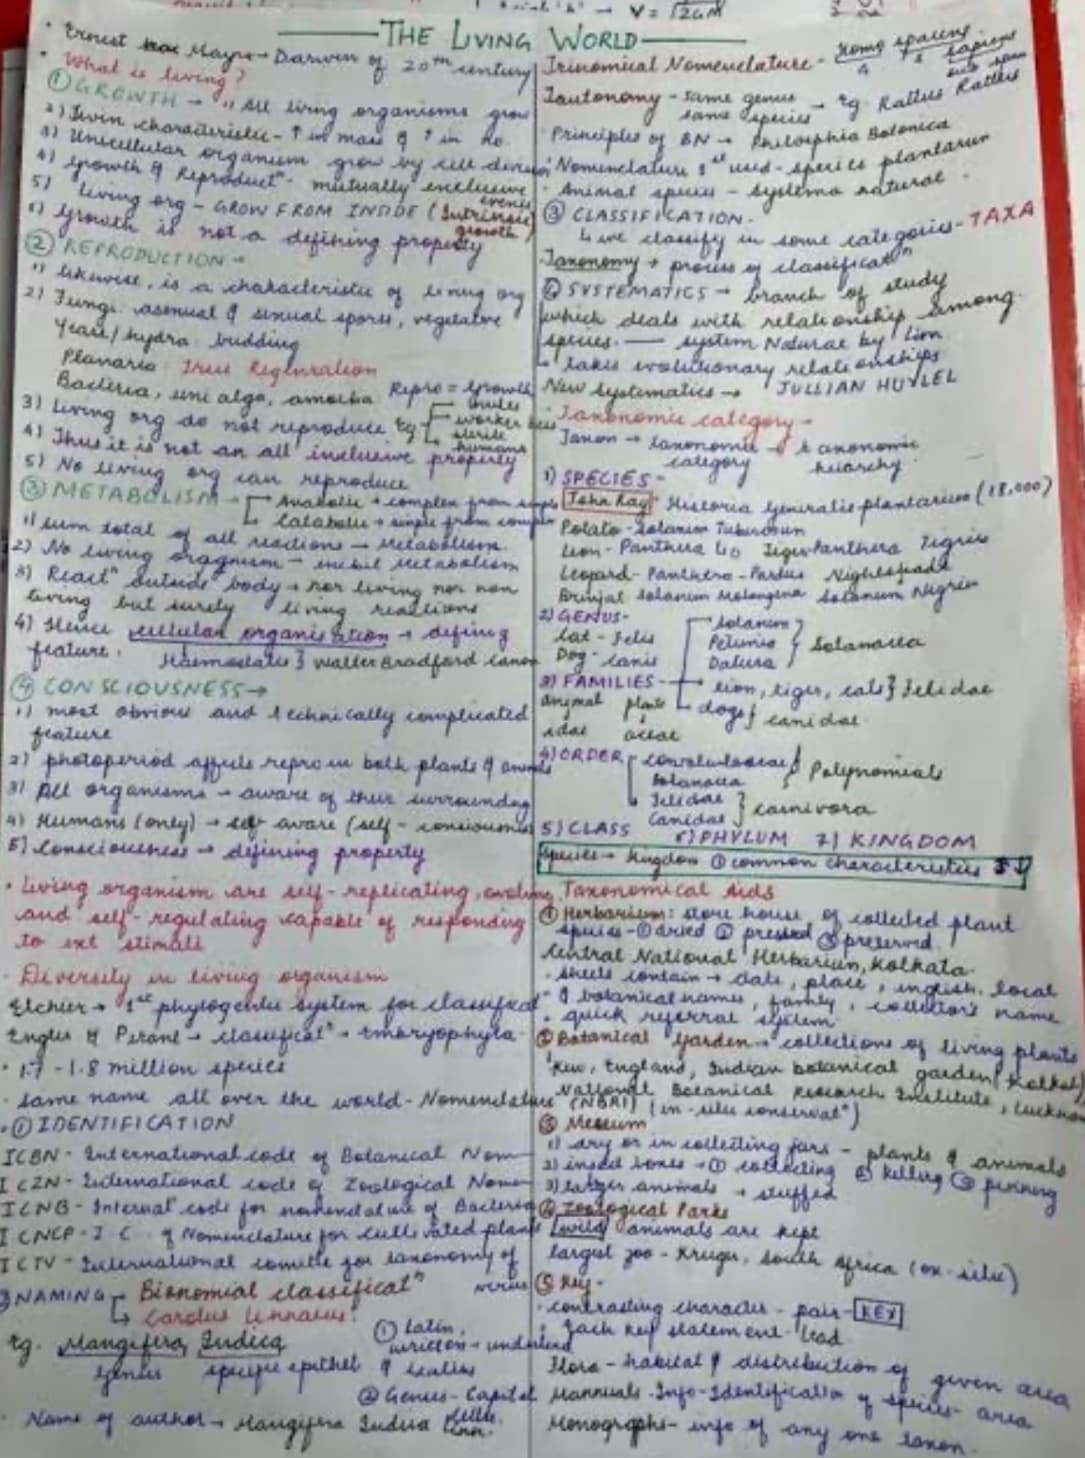 V = √2GM
THE LIVING WORLD
• Ernest Mayr - Darwin of 20th century
• What is living?
① GROWTH → "All living organisms grow
2) Twin characteristic - ↑ in mass & ↑ in no.
3) Unicellular organism grow by cell division
4) Growth & Reproductⁿ - mutually exclusive events
5) living org - GROW FROM INSIDE (Intrinsic growth)
6) Growth is not a defining property
② REPRODUCTION →
1) likewise, is a characteristic of living org
2) Fungi asexual & sexual spores, vegetative
Yeast/hydra budding
Planaria True Regenration
Bacteria, uni alga, amoeba Repro = Growth
3) living org do not reproduce eg mules
worker bees
sterile humans
4) Thus it is not an all inclusive property
5) No living org can reproduce
③ METABOLISM → Anabolic → complex from simple
Catabolic → simple from complex
1) sum total of all reactions → Metabolism.
2) No living oragnism - inibit Metabolism
3) Reactⁿ outside body → nor living nor non
living but surely living reactions
4) Hence cellular organisation → defining
feature. Haemostatis } Walter Bradford Canon
④ CONSCIOUSNESS →
1) most obvious and technically complicated
feature
2) photoperiod affects repro in both plants & animals
3) All organisms → aware of their surrounding
4) Humans (only) → self aware (self - consiousness
5) Consciousness → defining property
• living organism are self-replicating, evolving
and self-regulating capable of responding
to ext stimuli
• Diversity in living organism
Eichier → 1st phylogenetic system for classificatⁿ
Engler & Pirant → classificatⁿ → Embryophyta
• 1.7 - 1.8 million species
• same name all over the world - Nomenclature
• ① IDENTIFICATION
ICBN - International code of Botanical Nom
ICZN - International code of Zoological Nome
ICNB - Internatⁿ code for nomenclature of Bacteria
ICNCP - I. C. of Nomenclature for cultivated plant
ICTV - International comitte for taxonomy of
virus
② NAMING → Bionomial classificatⁿ
↳ Carolus Linnaeus.
Eg. Mangifera Indica
genus specific epithet
① Latin,
written → underlined
& italics
② Genus - Capital letter
• Name of author → Mangifera Indica Linn.
Trinomical Nomenclature - Homo spaiens sapiens
G S sub spe
Tautonomy - same genus
same species → eg. Rattus Rattus
Principles of BN → Philosphia Botonica
• Nomenclature 1st used - species plantarum
• Animal species - systema natural.
③ CLASSIFICATION -
↳ we classify in some categories - TAXA
Taxonomy → process of classificatⁿ
④ SYSTEMATICS → branch of study
which deals with relationship among
species. — system Naturae by Linn
• takes evolutionary relationships
New systematics → JULLIAN HUXLEL
Taxonomic category -
Taxon → taxonomic category → taxonomic heirarchy.
1) SPECIES -
John Ray Historia Generalis plantarium (18,000)
Potato - Solanum Tuburosum
Lion - Panthera leo Tiger Panthera Tigris
Leopard - Panthera - Pardus Nightshade
Brinjal Solanum Melongena Solanum Nigrin
2) GENUS -
Cat - Felis
Dog - canis
Solanum
Petunia
Datura } Solanacea
3) FAMILIES → lion, tiger, cats } Felidae
dogs } canidae
animal plants
idae aceae
4) ORDER convolvulaceae
Solanacea } Polynomials
Felidae
Canidae } carnivora
5) CLASS 6) PHYLUM 7) KINGDOM
Species → kingdom ① common characteristics
Taxonomical Aids
① Herbarium: store house of collected plant
species - ① dried ② pressed ③ preserved.
Central National Herbarium, Kolkata
• sheets contain → date, place, english, local
& botanical names, family, collector's name
• quick referral system
② Botanical Garden → collections of living plants
Kew, England, Indian botanical garden (Kolkata)
National Botanical Research Institute, Lucknow
(NBRI) (in-situ conservatⁿ)
③ Museum
1) dry or in collecting jars - plants & animals
2) insect boxes → ① collecting ② killing ③ pinning
3) larger animals → stuffed
④ Zoological Parks
wild animals are kept
largest zoo - Kruger, South Africa (ex-situ)
⑤ Key -
• contrasting character - pair - KEY
• Each key statement - Lead
Flora - habitat & distribution of given area
Mannuals - Info - Identification of species - area
Monographs - info of any one taxon.